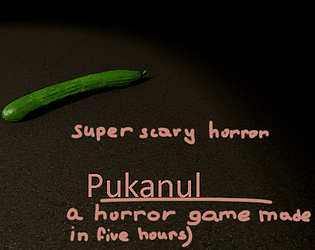 super scary horror
Pukanul
a horror game made
in five hours)